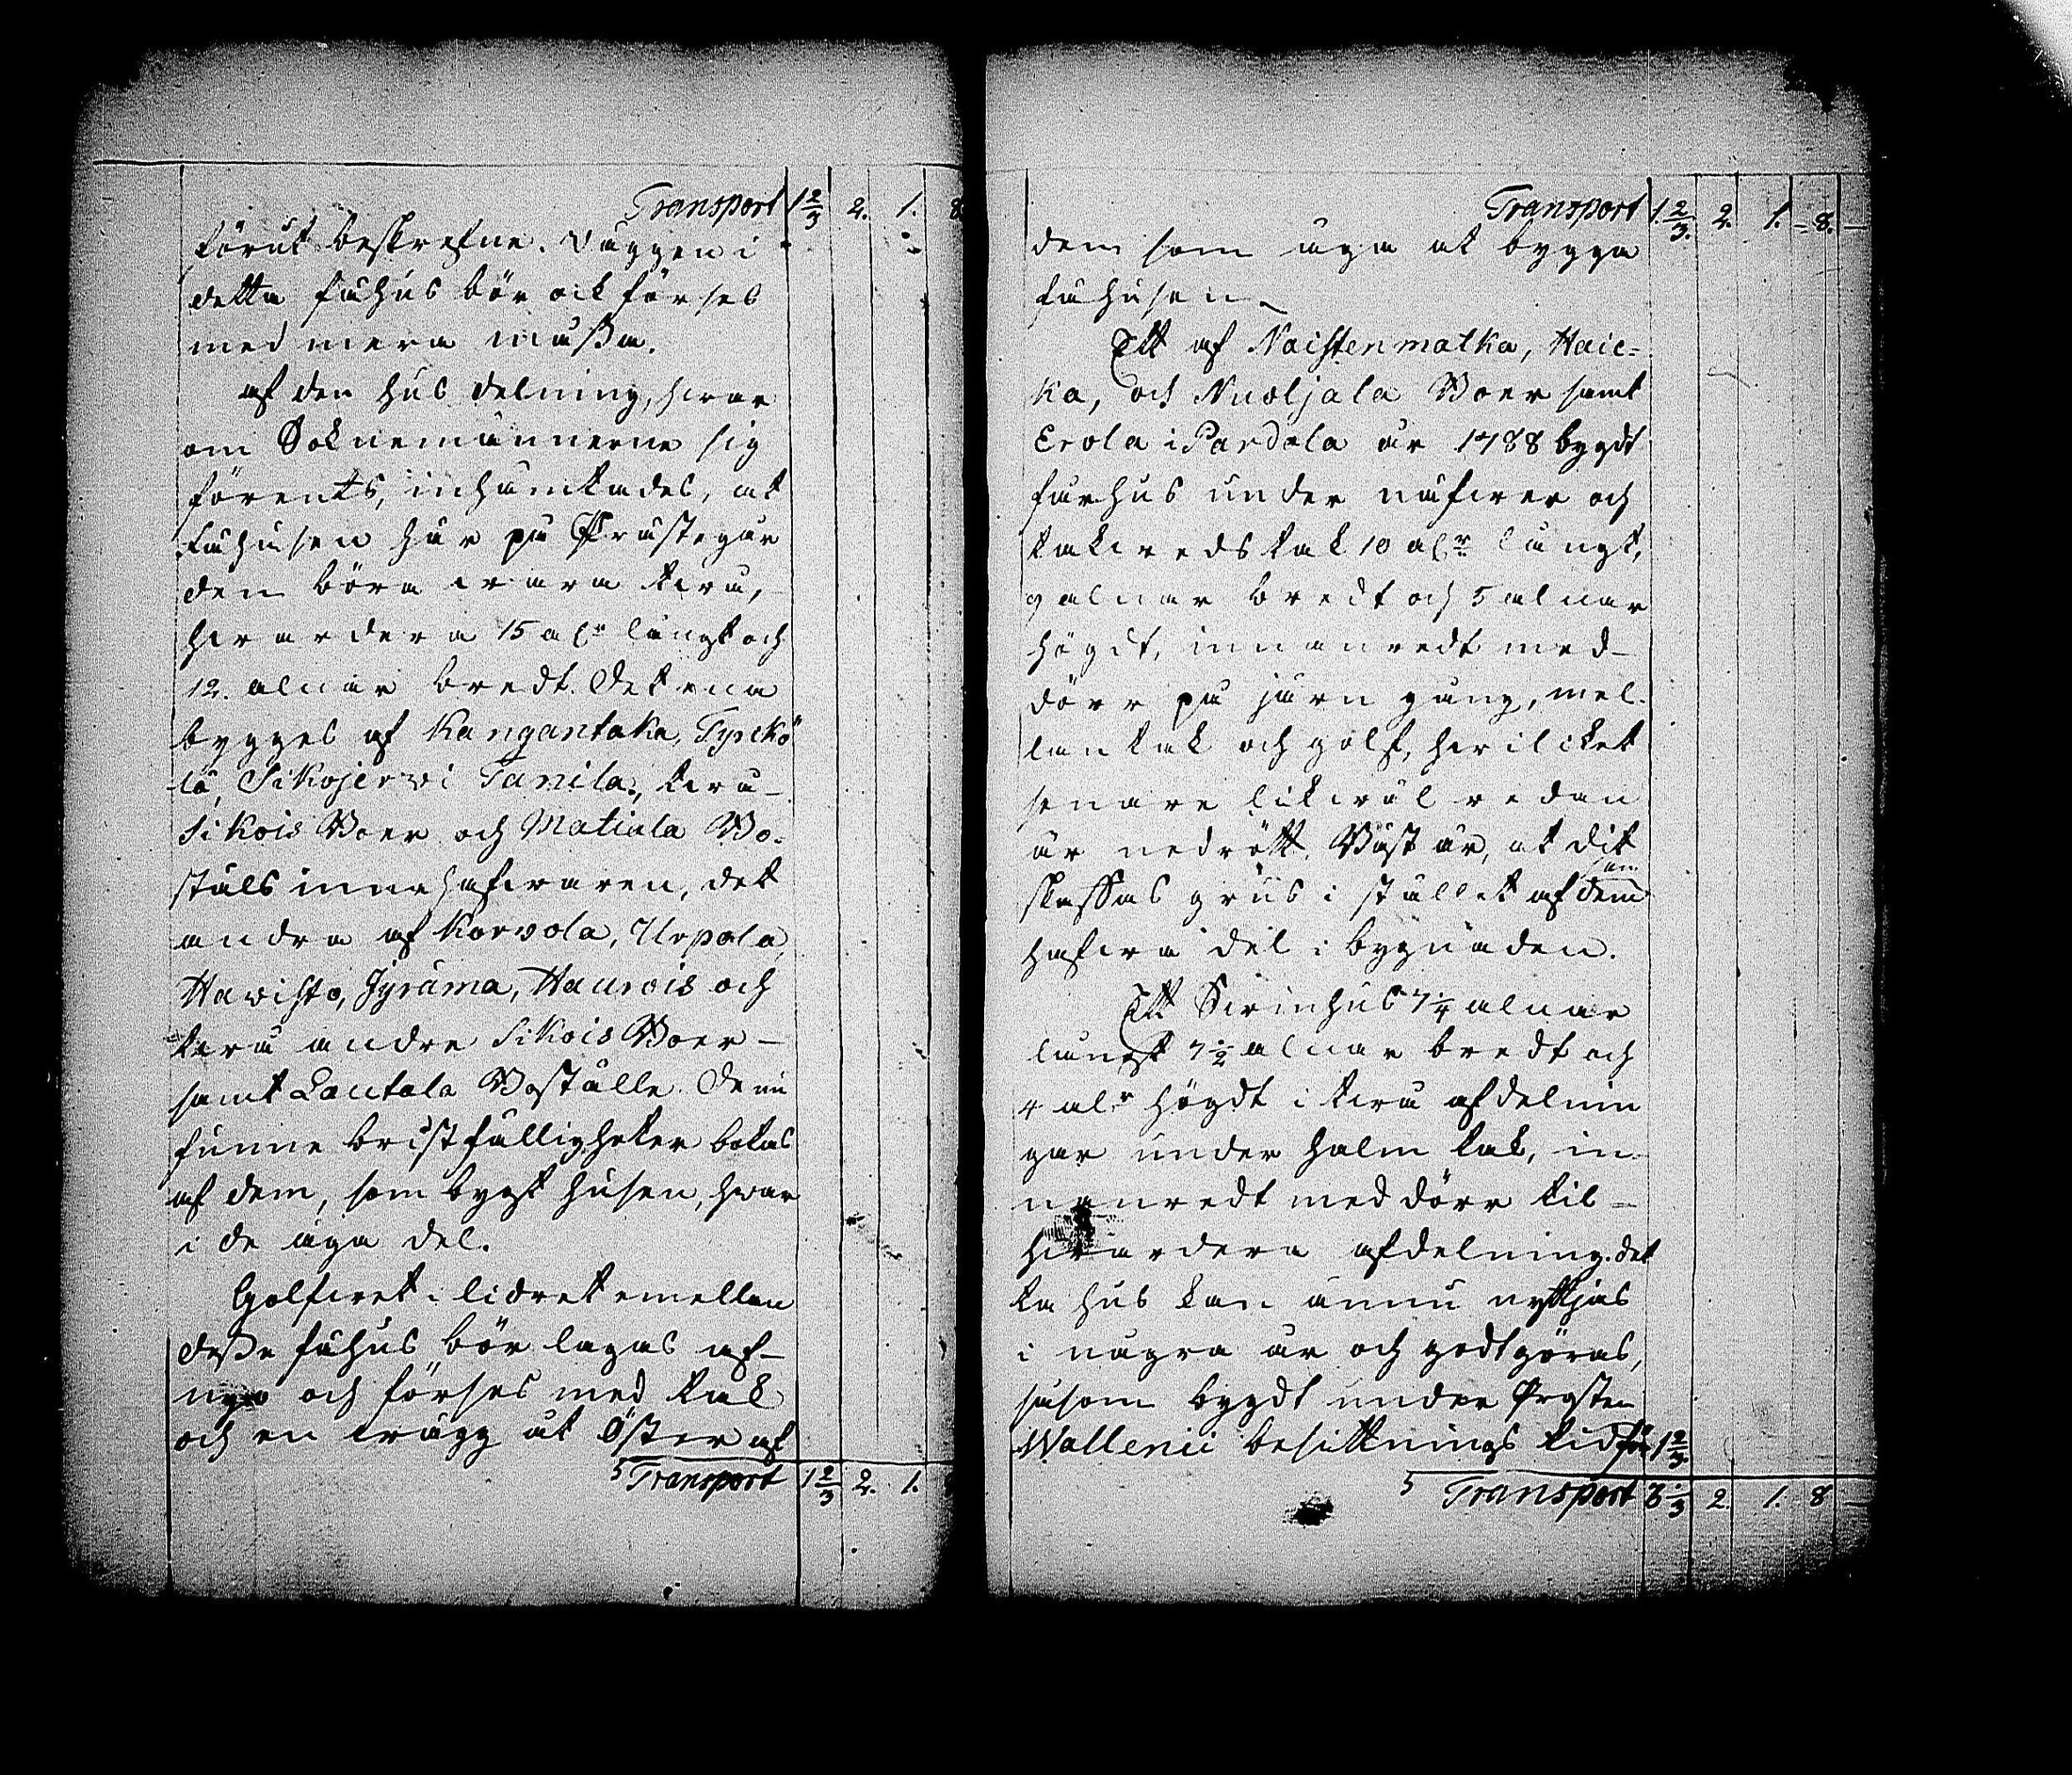 Transport 1 2/3 2. 1. 8
förut beskrefne. Väggen i
detta fähus bör ock förses
med mera måssa.
af den hus delning, hvar
om Soknemännerne sig
förents, inhämtades, at
fähusen här på Prästegår
den böra vara tvä,
hvardera 15 alr långt och
12. alnar bredt. Det ena
bygges af Kangantaka, Tyrckö
lä, Sikojerwi Tanila, tvä
Sikois Boer och Matiala Bo-
ställs innehafvaren, det
andra af Korvola, Urpola,
Havisto, Jyrämä, Haurois och
tvä andre Sikois Boer
samt Lautala Boställe. De nu
funne bristfälligheter botas
af dem, som bygt husen, hvar
i de äga del.
Golfvet i lidret emellan
desse fähus bör lagas af
nyo och förses med tak
och en vägg åt Öster af
5 Transport 1 2/3 2. 1.
Transport 1 2/3. 2. 1. 8. —
dem som äga at bygga
fähusen.
Ett af Naistenmatka, Haic-
ka, och Nuoljala Boer samt
Erola i Pardala år 1788 bygdt
fårhus under näfver och
takvedstak 10 alr långt,
9 alnar bredt och 5 alnar
högdt, innanredt med
dörr på järn gång, mel-
lan tak och golf, hvilcket
senare likväl redan
är nedrött. Bäst är, at dit
skaffas grus i stället af dem
som
hafva del i bygnaden.
Ett Svinhus 7 1/4 alnar
långt 7 1/2 alnar bredt och
4 alr högdt i tvä afdelnin
gar under halm tak, in-
nanredt med dörr til
hvardera afdelning. Det
ta hus kan ännu nyttjas
i några år och godtgöras,
såsom bygdt under Prosten
Wallenii besittnings tid för 1 2/3.
5 Transport 3 1/3 2. 1. 8 —